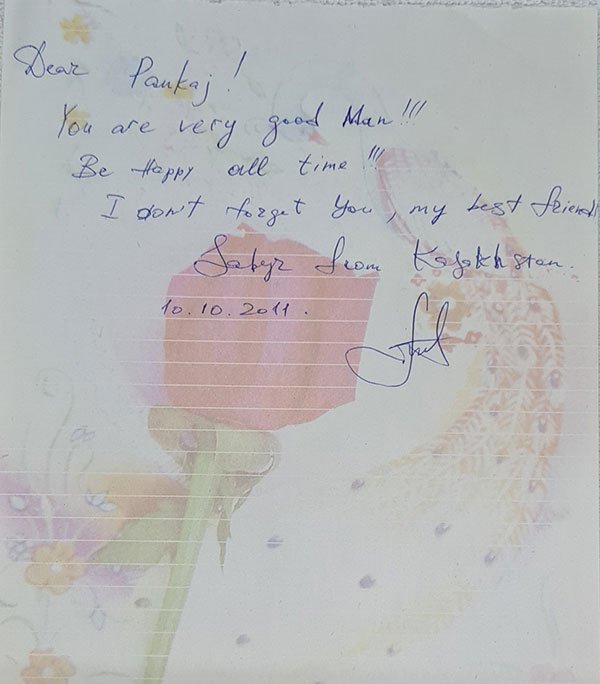 Dear Pankaj!
You are very good Man!!!
Be Happy all time!!!
I don't forget You, my best friend
Sabyr from Kazakhstan.
10.10.2011.